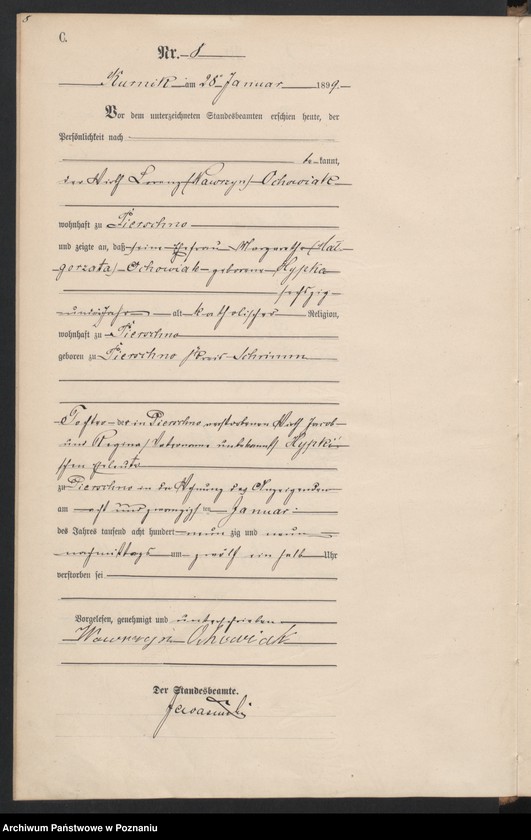 8
C.
Nr. 8
Kurnik am 28 Januar 1899.
Vor dem unterzeichneten Standesbeamten erschien heute, der
Persönlichkeit nach
be kannt,
der Wirth Lorenz (Wawrzyn) Ochowiak
wohnhaft zu Pierschno
und zeigte an, daß seine Ehefrau Margarethe (Mał-
gorzata) Ochowiak geborene Hypka
sechszig
Jahr alt katholischer Religion,
wohnhaft zu Pierschno
geboren zu Pierschno Kreis Schrimm
Tochter der in Pierschno verstorbenen Wirth Jacob
und Regina (Vatername unbekannt) Hypka
schen Eheleute
zu Pierschno in der Wohnung des Anzeigenden
am acht und zwanzigsten Januar
des Jahres tausend acht hundert neun zig und neun
nachmittags um zwölf ein halb Uhr
verstorben sei
Vorgelesen, genehmigt und unterschrieben
Wawrzyn Ochowiak
Der Standesbeamte.
Archiwum Państwowe w Poznaniu